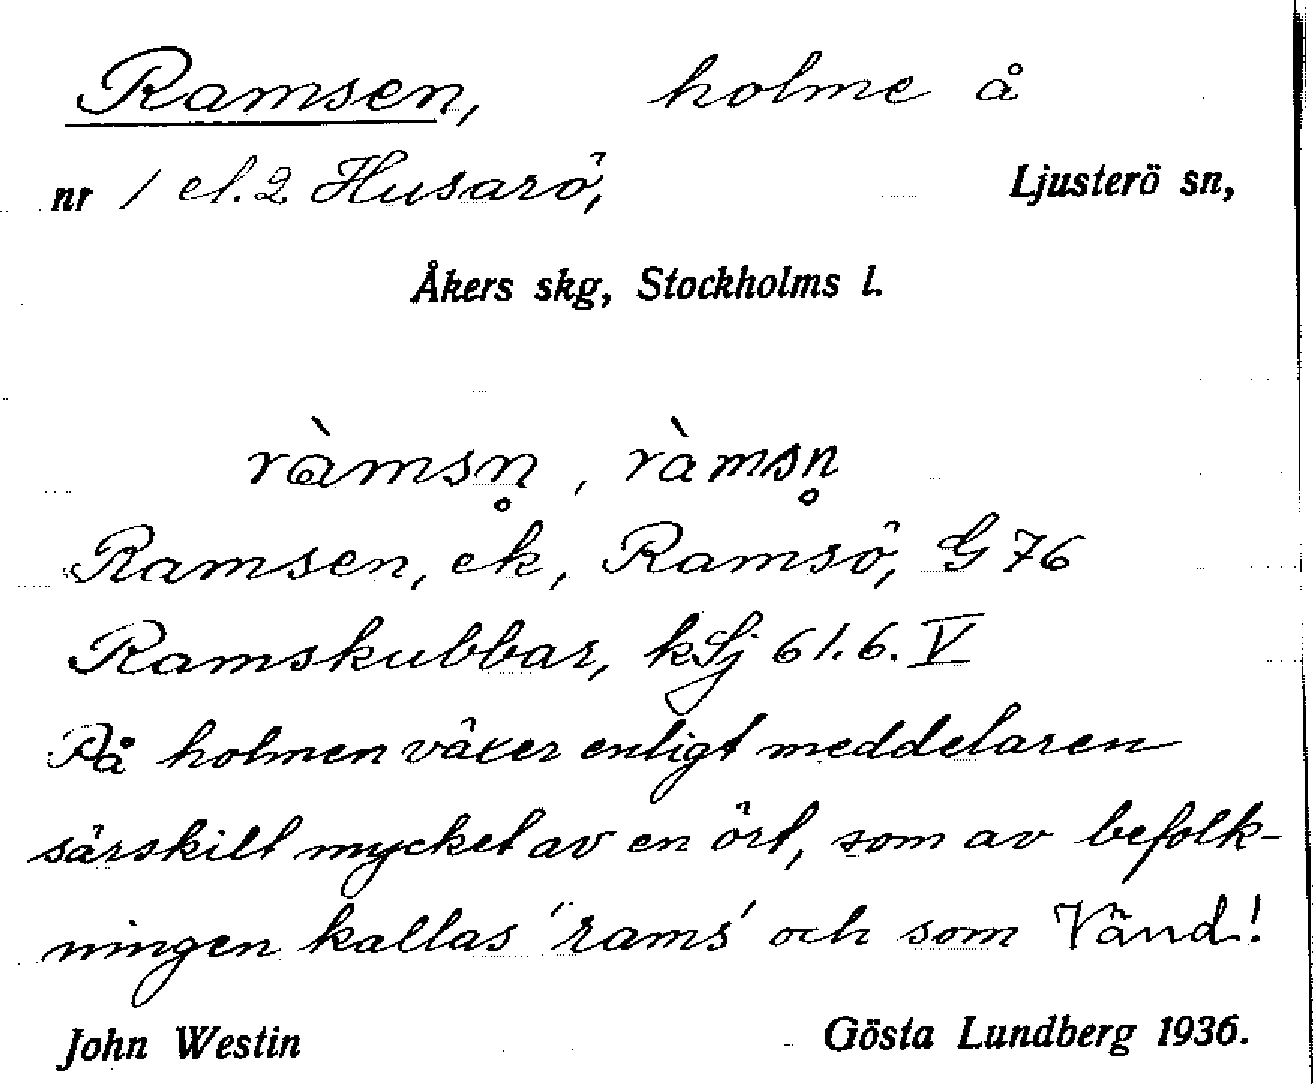 Ramsen, holme å
nr 1 el. 2 Husarö, Ljusterö sn,
Åkers skg, Stockholms l.
ràmsn̥, ràmsn̥
Ramsen, ek, Ramsö, G 76
Ramskubbar, kSj 61.6. V
På holmen växer enligt meddelaren
särskilt mycket av en ört, som av befolk-
ningen kallas 'rams' och som Vänd!
John Westin Gösta Lundberg 1936.